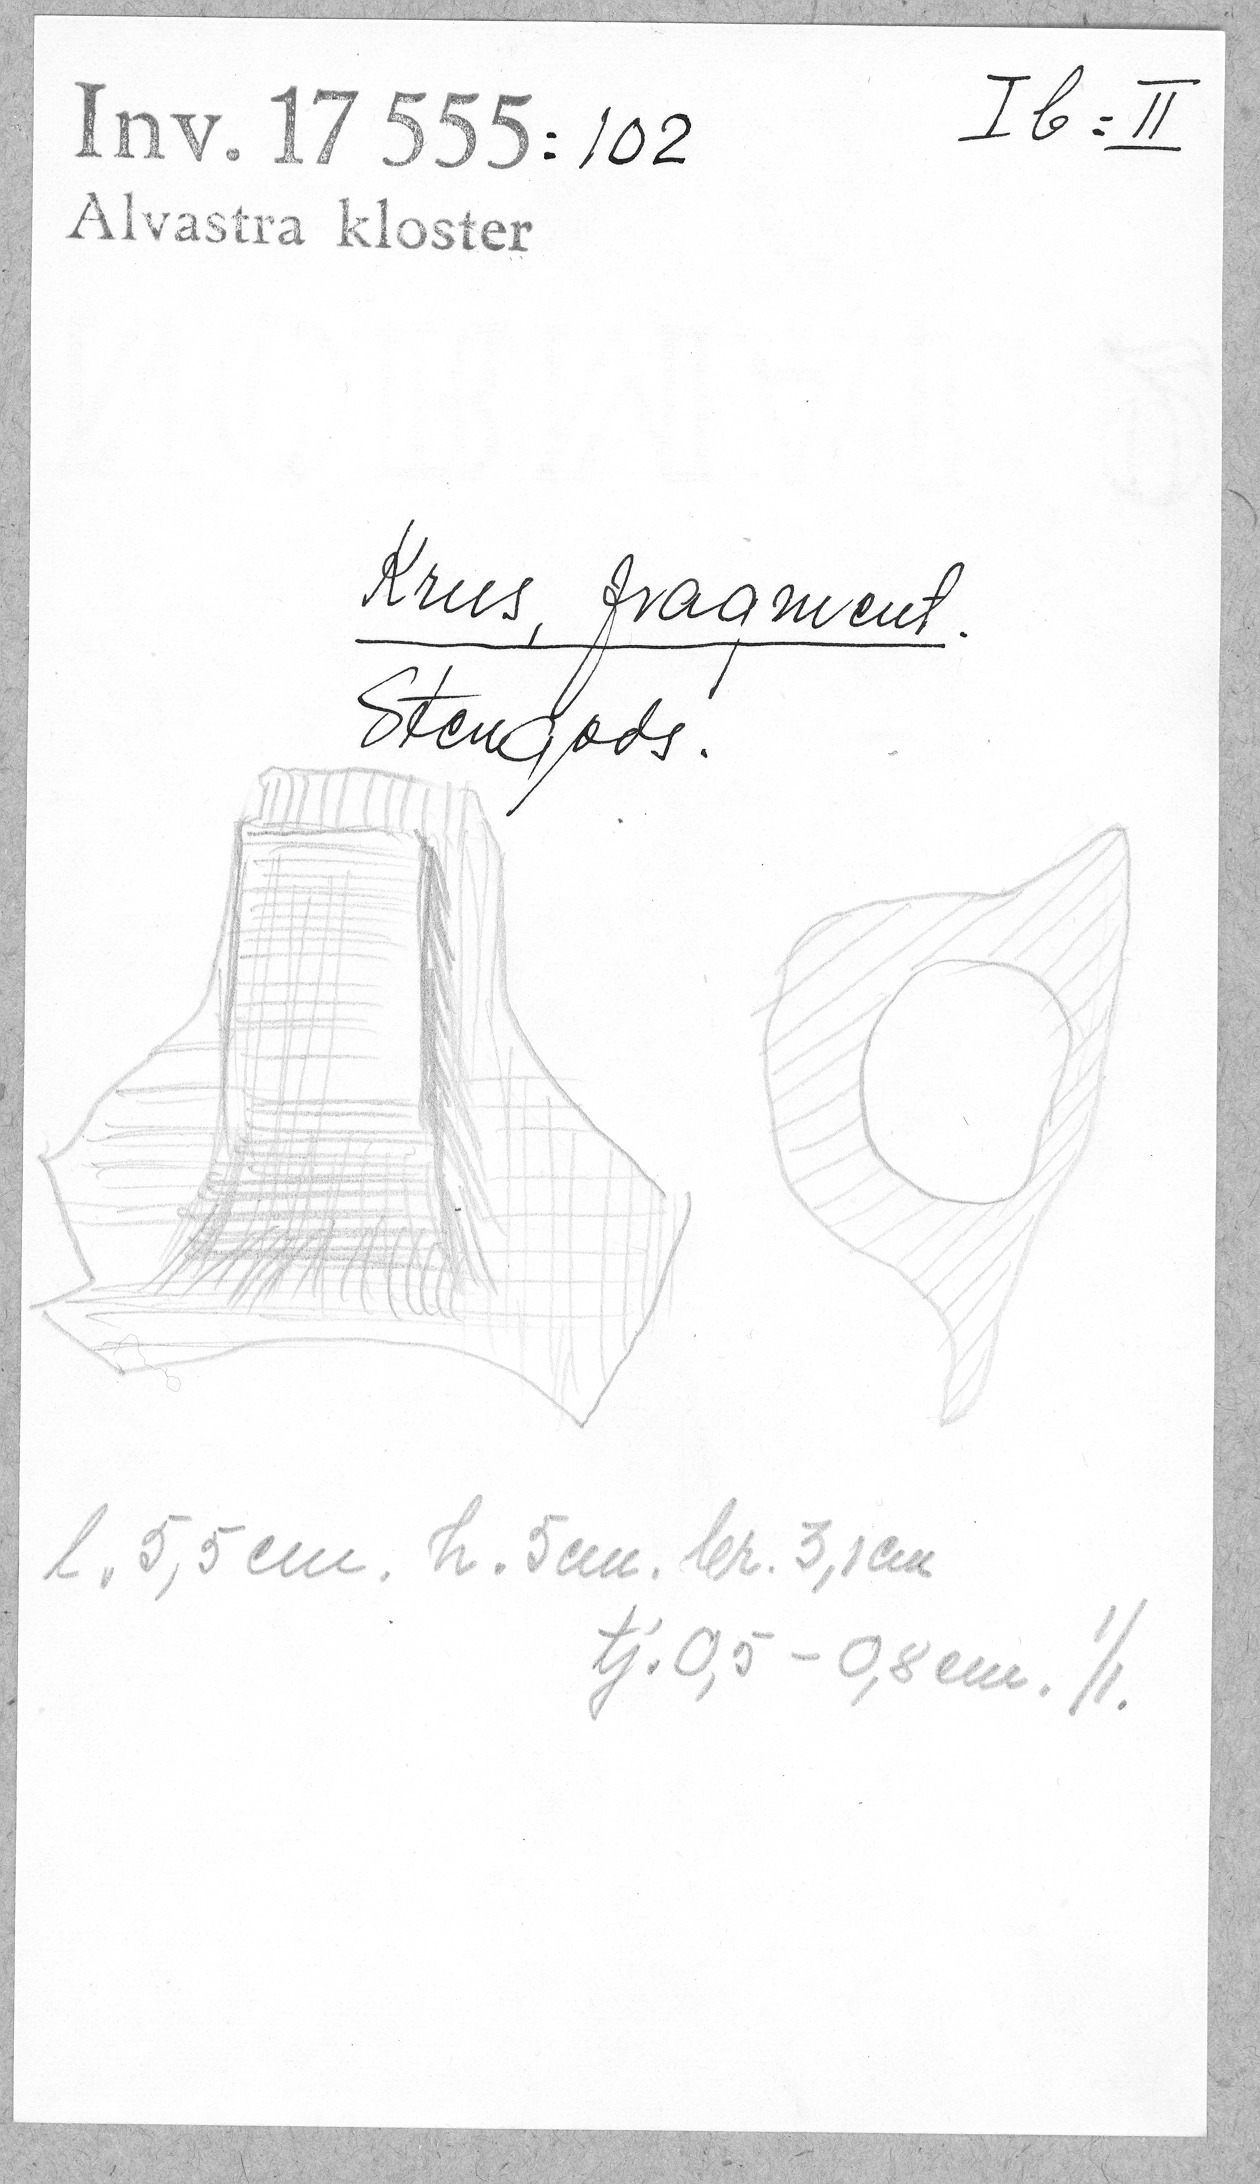 Inv. 17 555:102
Ib:II
Alvastra kloster
Krus, fragment.
Stengods.
l. 5,5 cm. h. 5 cm. br. 3,1 cm
tj. 0,5 - 0,8 cm. 1/1.